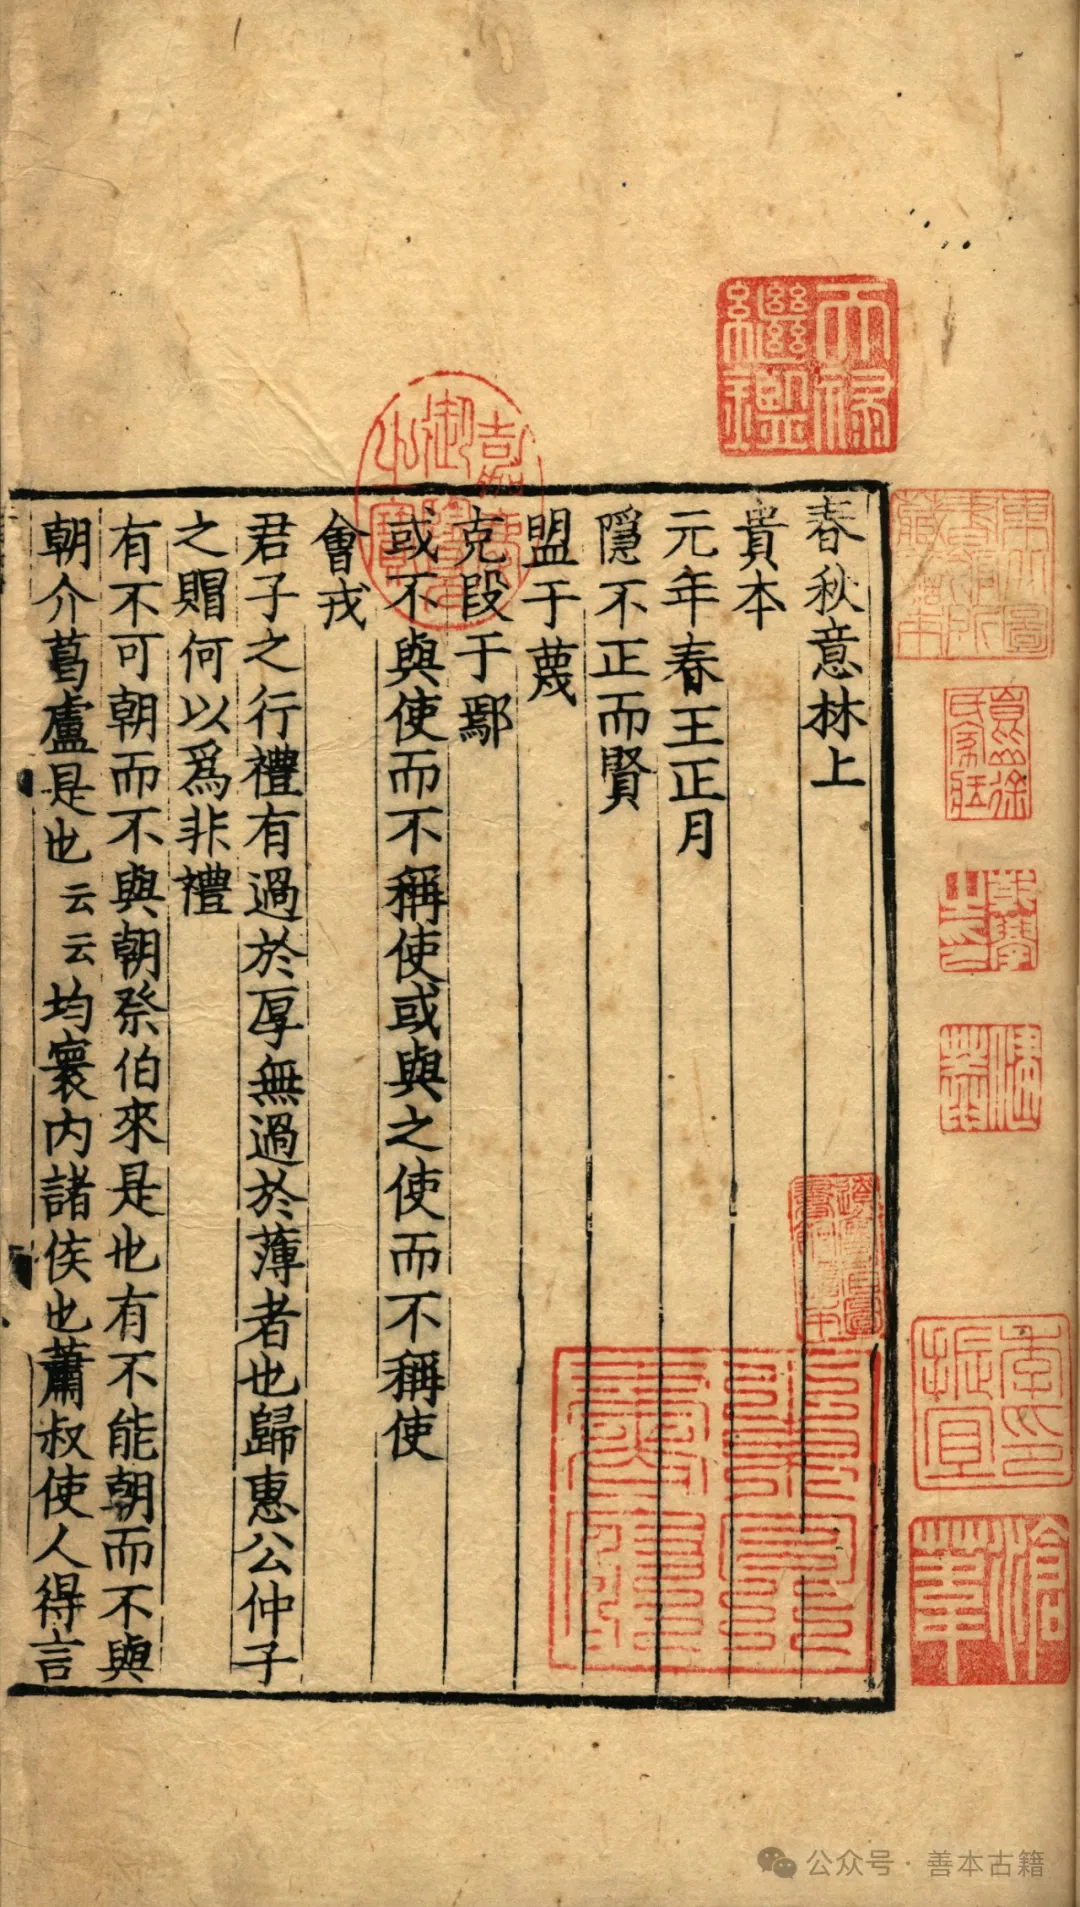 春秋意林上
貴本
元年春王正月
隱不正而賢
盟于蔑
克段于鄢
或不與使而不稱使或與之使而不稱使
會戎
君子之行禮有過於厚無過於薄者也歸惠公仲子
之賵何以爲非禮
有不可朝而不與朝祭伯來是也有不能朝而不與
朝介葛盧是也云云均寰内諸侯也蕭叔使人得言
天祿繼鑑
乾隆御覽之寶
季振宜印
滄葦
公众号·善本古籍